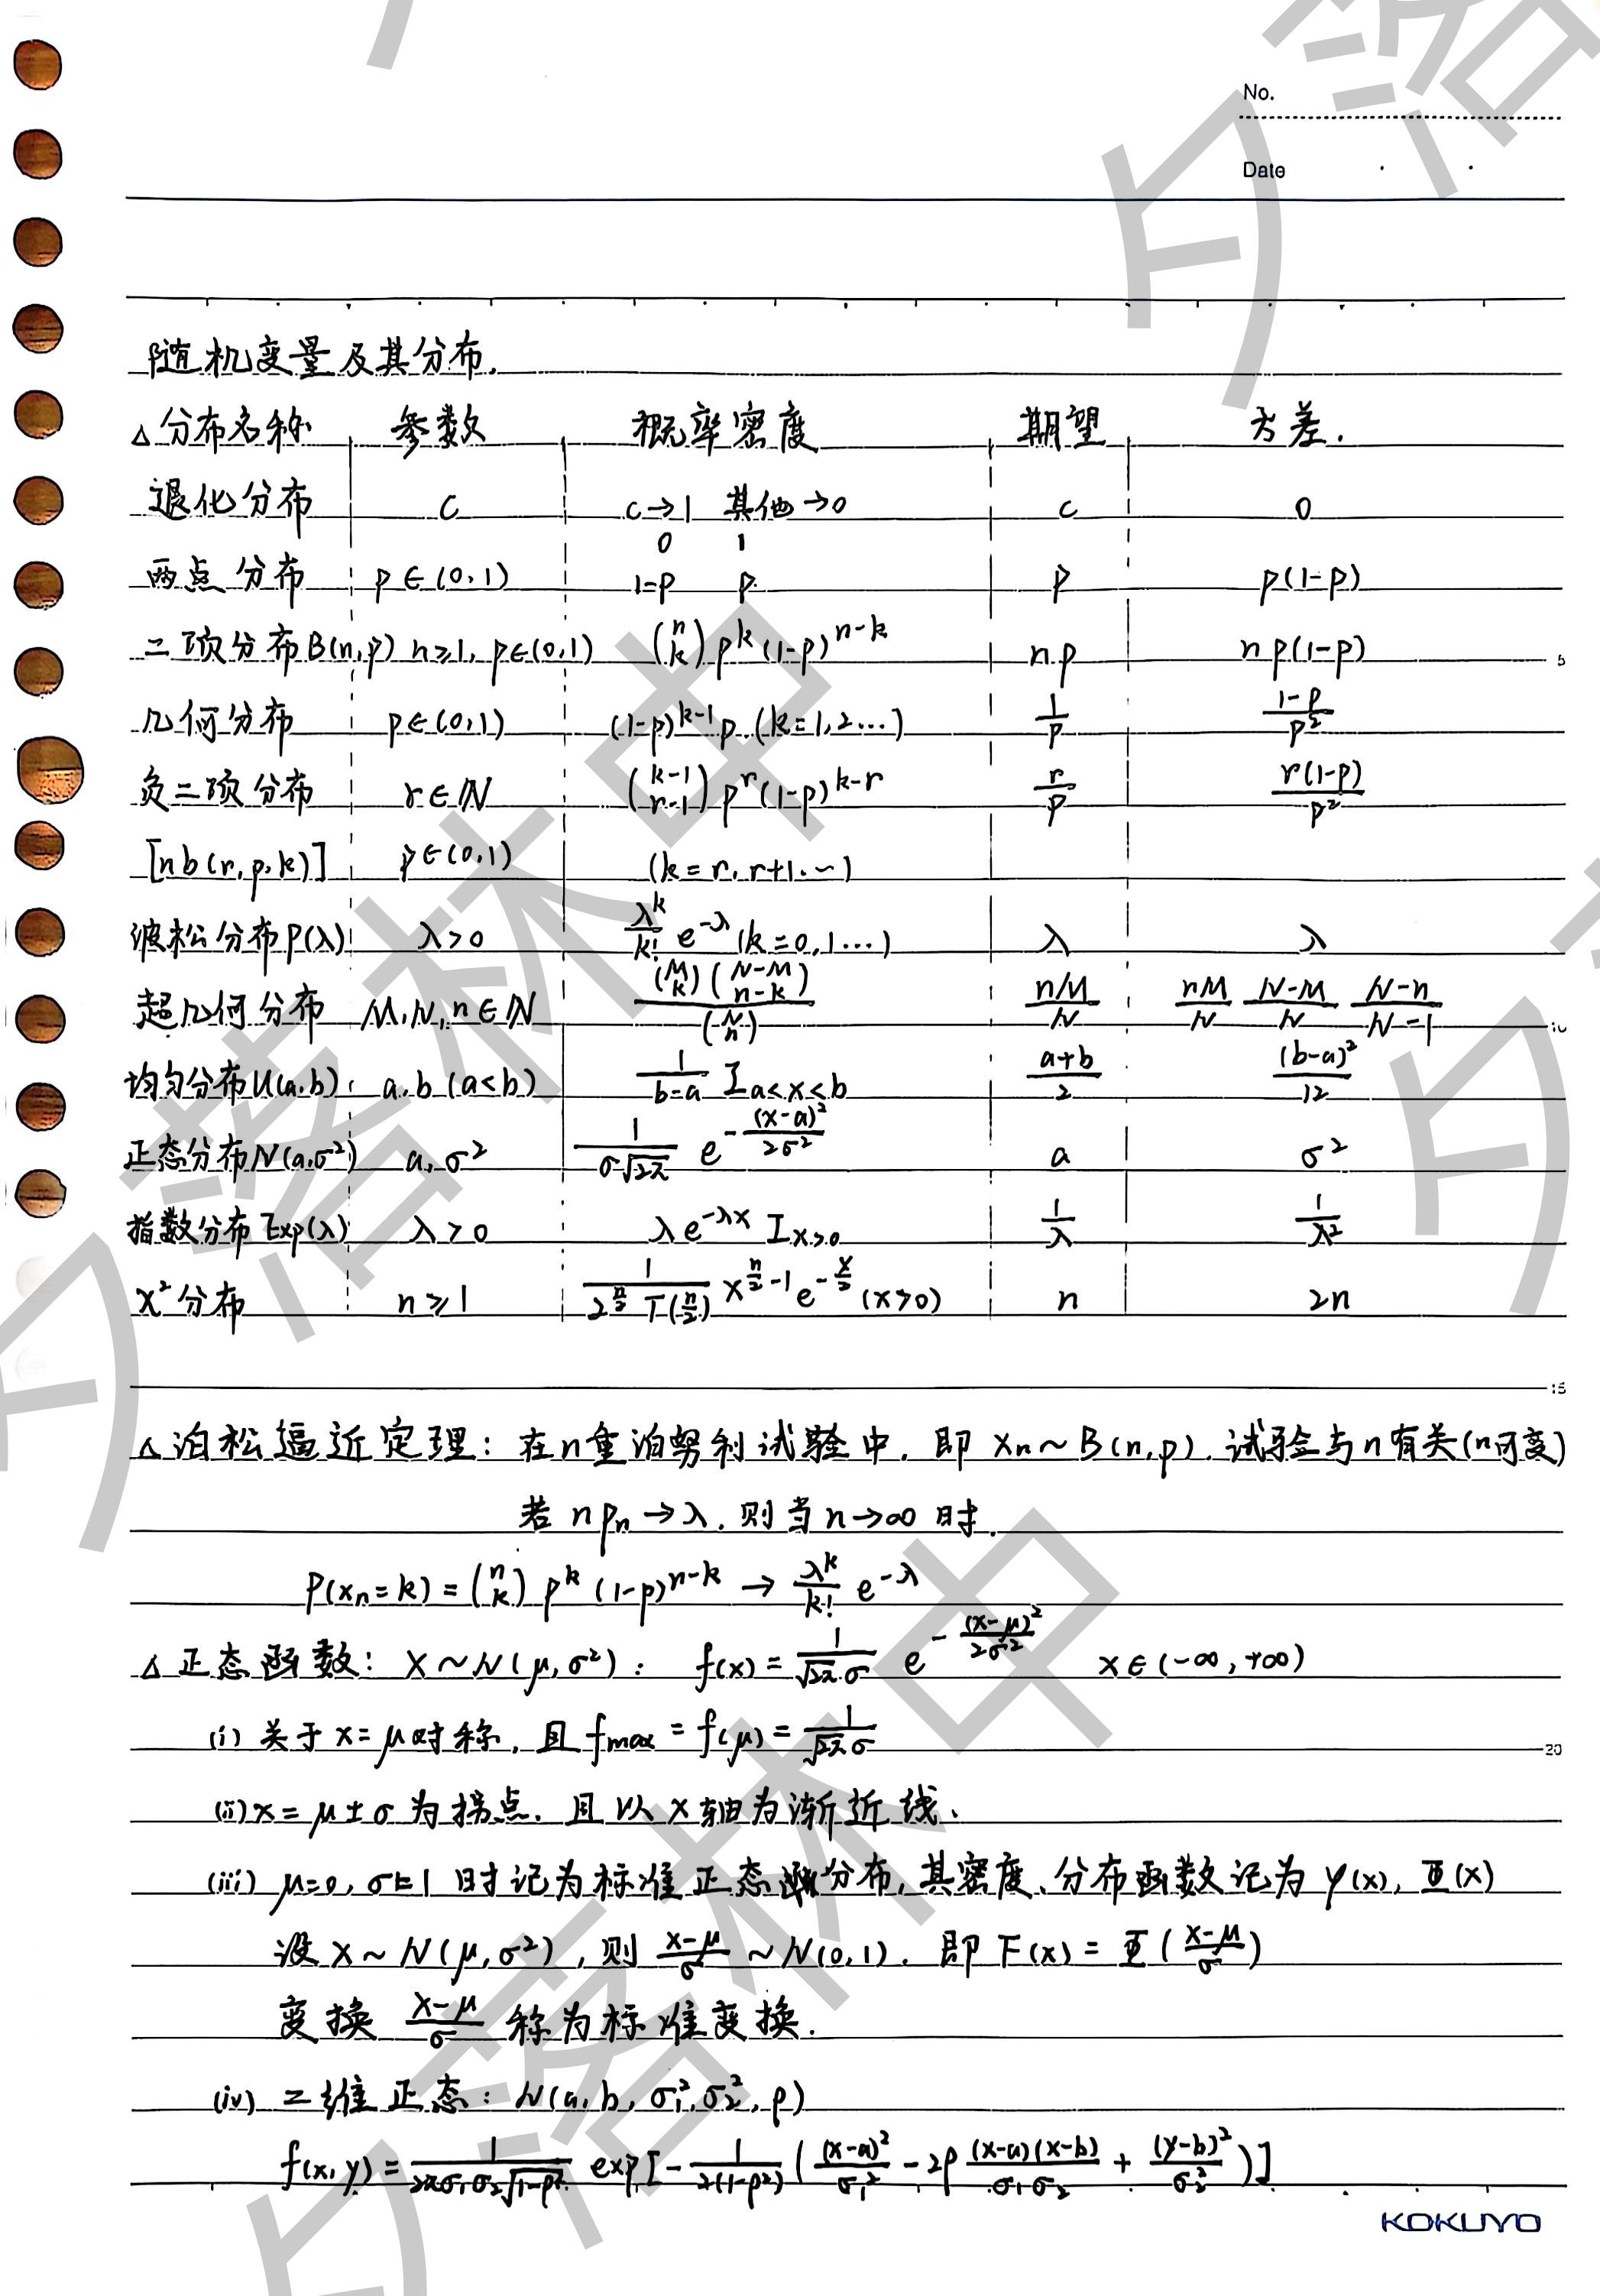 No.
Date
随机变量及其分布.
△分布名称 参数 概率密度 期望 方差.
退化分布 c c→1 其他→0 c 0
0 1
两点分布 p∈(0,1) 1-p p p p(1-p)
二项分布B(n,p) n≥1, p∈(0,1) (n k) p^k (1-p)^{n-k} np np(1-p)
几何分布 p∈(0,1) (1-p)^{k-1} p (k=1,2…) 1/p (1-p)/p²
负二项分布 r∈N (k-1 r-1) p^r (1-p)^{k-r} r/p r(1-p)/p²
[nb(r,p,k)] p∈(0,1) (k=r, r+1,…)
波松分布P(λ) λ>0 λ^k/k! e^{-λ} (k=0,1…) λ λ
超几何分布 M,N,n∈N (M k)(N-M n-k)/(N n) nM/N nM/N (N-M)/N (N-n)/(N-1)
均匀分布U(a,b) a,b (a<b) 1/(b-a) I_{a<x<b} (a+b)/2 (b-a)²/12
正态分布N(a,σ²) a,σ² 1/(σ√2π) e^{-(x-a)²/2σ²} a σ²
指数分布Exp(λ) λ>0 λe^{-λx} I_{x>0} 1/λ 1/λ²
χ²分布 n≥1 1/(2^{n/2} Γ(n/2)) x^{n/2-1} e^{-x/2} (x>0) n 2n
△泊松逼近定理: 在n重泊努利试验中, 即 Xn~B(n,p), 试验与n有关(n可变)
若 npn→λ, 则当n→∞时,
P(xn=k)=(n k) p^k (1-p)^{n-k} → λ^k/k! e^{-λ}
△正态函数: X~N(μ,σ²): f(x)=1/(√2π σ) e^{-(x-μ)²/2σ²} x∈(-∞,+∞)
(i) 关于x=μ对称, 且 fmax=f(μ)=1/(√2π σ)
(ii) x=μ±σ为拐点. 且以x轴为渐近线、
(iii) μ=0, σ=1 时记为标准正态分布, 其密度、分布函数记为 φ(x), Φ(x)
设X~N(μ,σ²), 则 (X-μ)/σ ~N(0,1). 即F(x)=Φ((x-μ)/σ)
变换 (X-μ)/σ 称为标准变换.
(iv) 二维正态: N(a,b,σ₁²,σ₂²,ρ)
f(x,y)=1/(2πσ₁σ₂√(1-ρ²)) exp[-1/(2(1-ρ²)) ((x-a)²/σ₁² - 2ρ (x-a)(x-b)/(σ₁σ₂) + (y-b)²/σ₂²)]
5
10
15
20
KOKUYO
夕落林中
夕落林中
夕落
夕